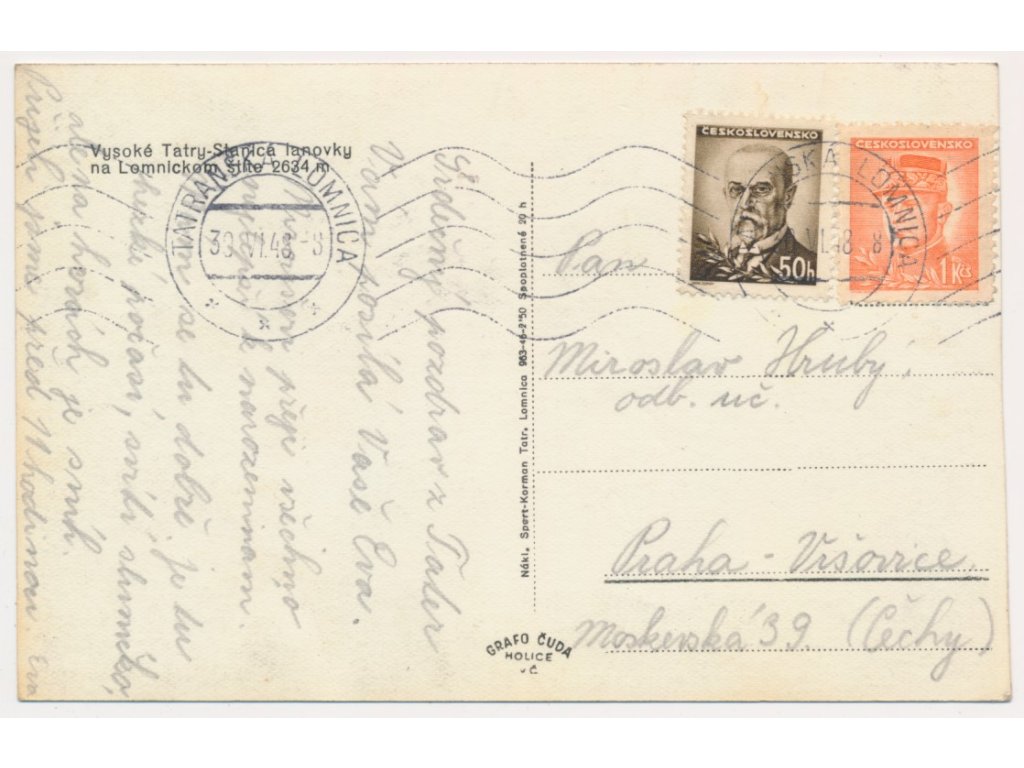 Vysoké Tatry-Stanica lanovky
na Lomnickom štíte 2634 m
TATRANSKÁ LOMNICA
30. VI. 48 - 8
Srdečný pozdrav z Tater
Vám posílá Vaše Eva.
přeje všechno
k narozeninám.
se tu dobře. je tu
hezké počasí, svítí sluníčko,
ale na horách je sníh.
Přijeli jsme před 11 hodinou. Eva
Nákl. Sport-Korman Tatr. Lomnica 963-46-2'50 Spoplatnené 20 h
GRAFO ČUDA
HOLICE
v Č
ČESKOSLOVENSKO
50h
ČESKOSLOVENSKO
1 Kčs
SKÁ LOMNICA
VI.48 8
Pan
Miroslav Hrubý,
odb. uč.
Praha - Vršovice
Moskevská 39. (Čechy)